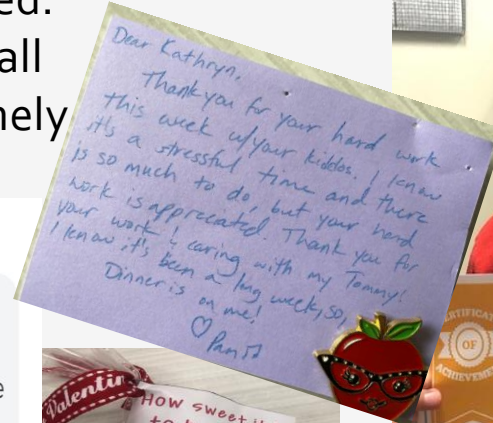 ed.
all
nely
Dear Kathryn,
Thank you for your hard work
this week w/your kiddos. I know
it's a stressful time and there
is so much to do, but your hard
work is appreciated. Thank you for
your work & caring with my Tommy!
I know it's been a long week, so,
Dinner is on me!
♡ Pam
e
Valentin
HOW sweet i
to
RTIFICAT
OF
ACHIEVEMEN